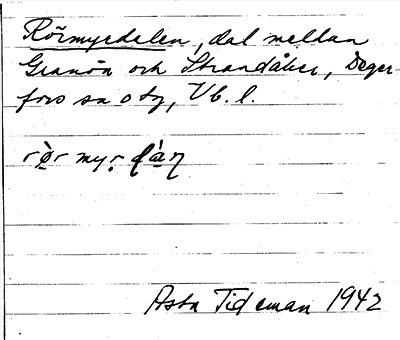 Rörmyrdalen, dal mellan
Granön och Strandåker, Deger
fors sn o tg, Vb. l.
Asta Tideman 1942